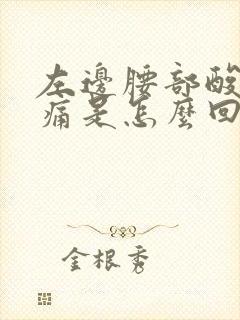 左邊腰部酸
痛是怎麼回
金根秀